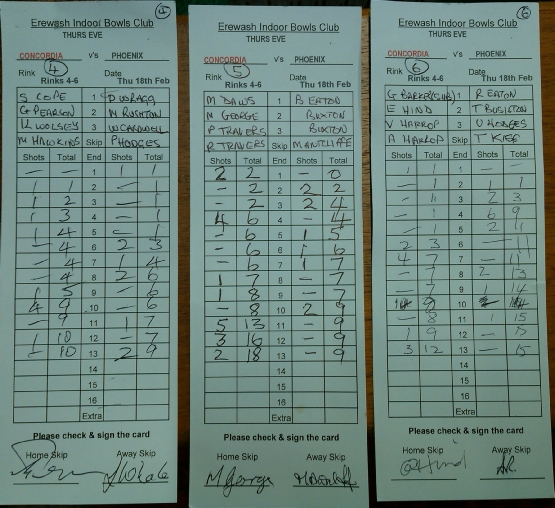 4
Erewash Indoor Bowls Club
THURS EVE
CONCORDIA v's PHOENIX
Rink 4 Date
Rinks 4-6 Thu 18th Feb
S COPE 1 D WRAGG
G PEARSON 2 M RUSHTON
K WOLSEY 3 W CARDWELL
M HAWKINS Skip P HODGES
Shots Total End Shots Total
— — 1 1 1
1 1 2 — 1
1 2 3 — 1
1 3 4 — 1
1 4 5 — 1
— 4 6 2 3
— 4 7 1 4
— 4 8 2 6
1 5 9 — 6
4 9 10 — 6
— 9 11 1 7
1 10 12 — 7
— 10 13 2 9
14
15
16
Extra
Please check & sign the card
Home Skip Away Skip
Erewash Indoor Bowls Club
THURS EVE
CONCORDIA v's PHOENIX
Rink 5 Date
Rinks 4-6 Thu 18th Feb
M DAWS 1 B EATON
M GEORGE 2 BUXTON
P TRAVERS 3 BUXTON
R TRAVERS Skip
Shots Total End Shots Total
2 2 1 — 0
— 2 2 2 2
— 2 3 2 4
4 6 4 — 4
— 6 5 1 5
— 6 6 1 6
— 6 7 1 7
1 7 8 — 7
1 8 9 — 7
— 8 10 2 9
5 13 11 — 9
3 16 12 — 9
2 18 13 — 9
14
15
16
Extra
Please check & sign the card
Home Skip Away Skip
M George
6
Erewash Indoor Bowls Club
THURS EVE
CONCORDIA v's PHOENIX
Rink 6 Date
Rinks 4-6 Thu 18th Feb
G BARKER(SUB) 1 R EATON
E HIND 2 T RUSHTON
V HARROP 3 V HODGES
A HARROP Skip
Shots Total End Shots Total
1 1 1 — —
— 1 2 1 1
— 1 3 2 3
— 1 4 6 9
— 1 5 2 11
2 3 6 — 11
4 7 7 — 11
— 7 8 2 13
— 7 9 1 14
10
— 8 11 1 15
1 9 12 — 15
3 12 13 — 15
14
15
16
Extra
Please check & sign the card
Home Skip Away Skip